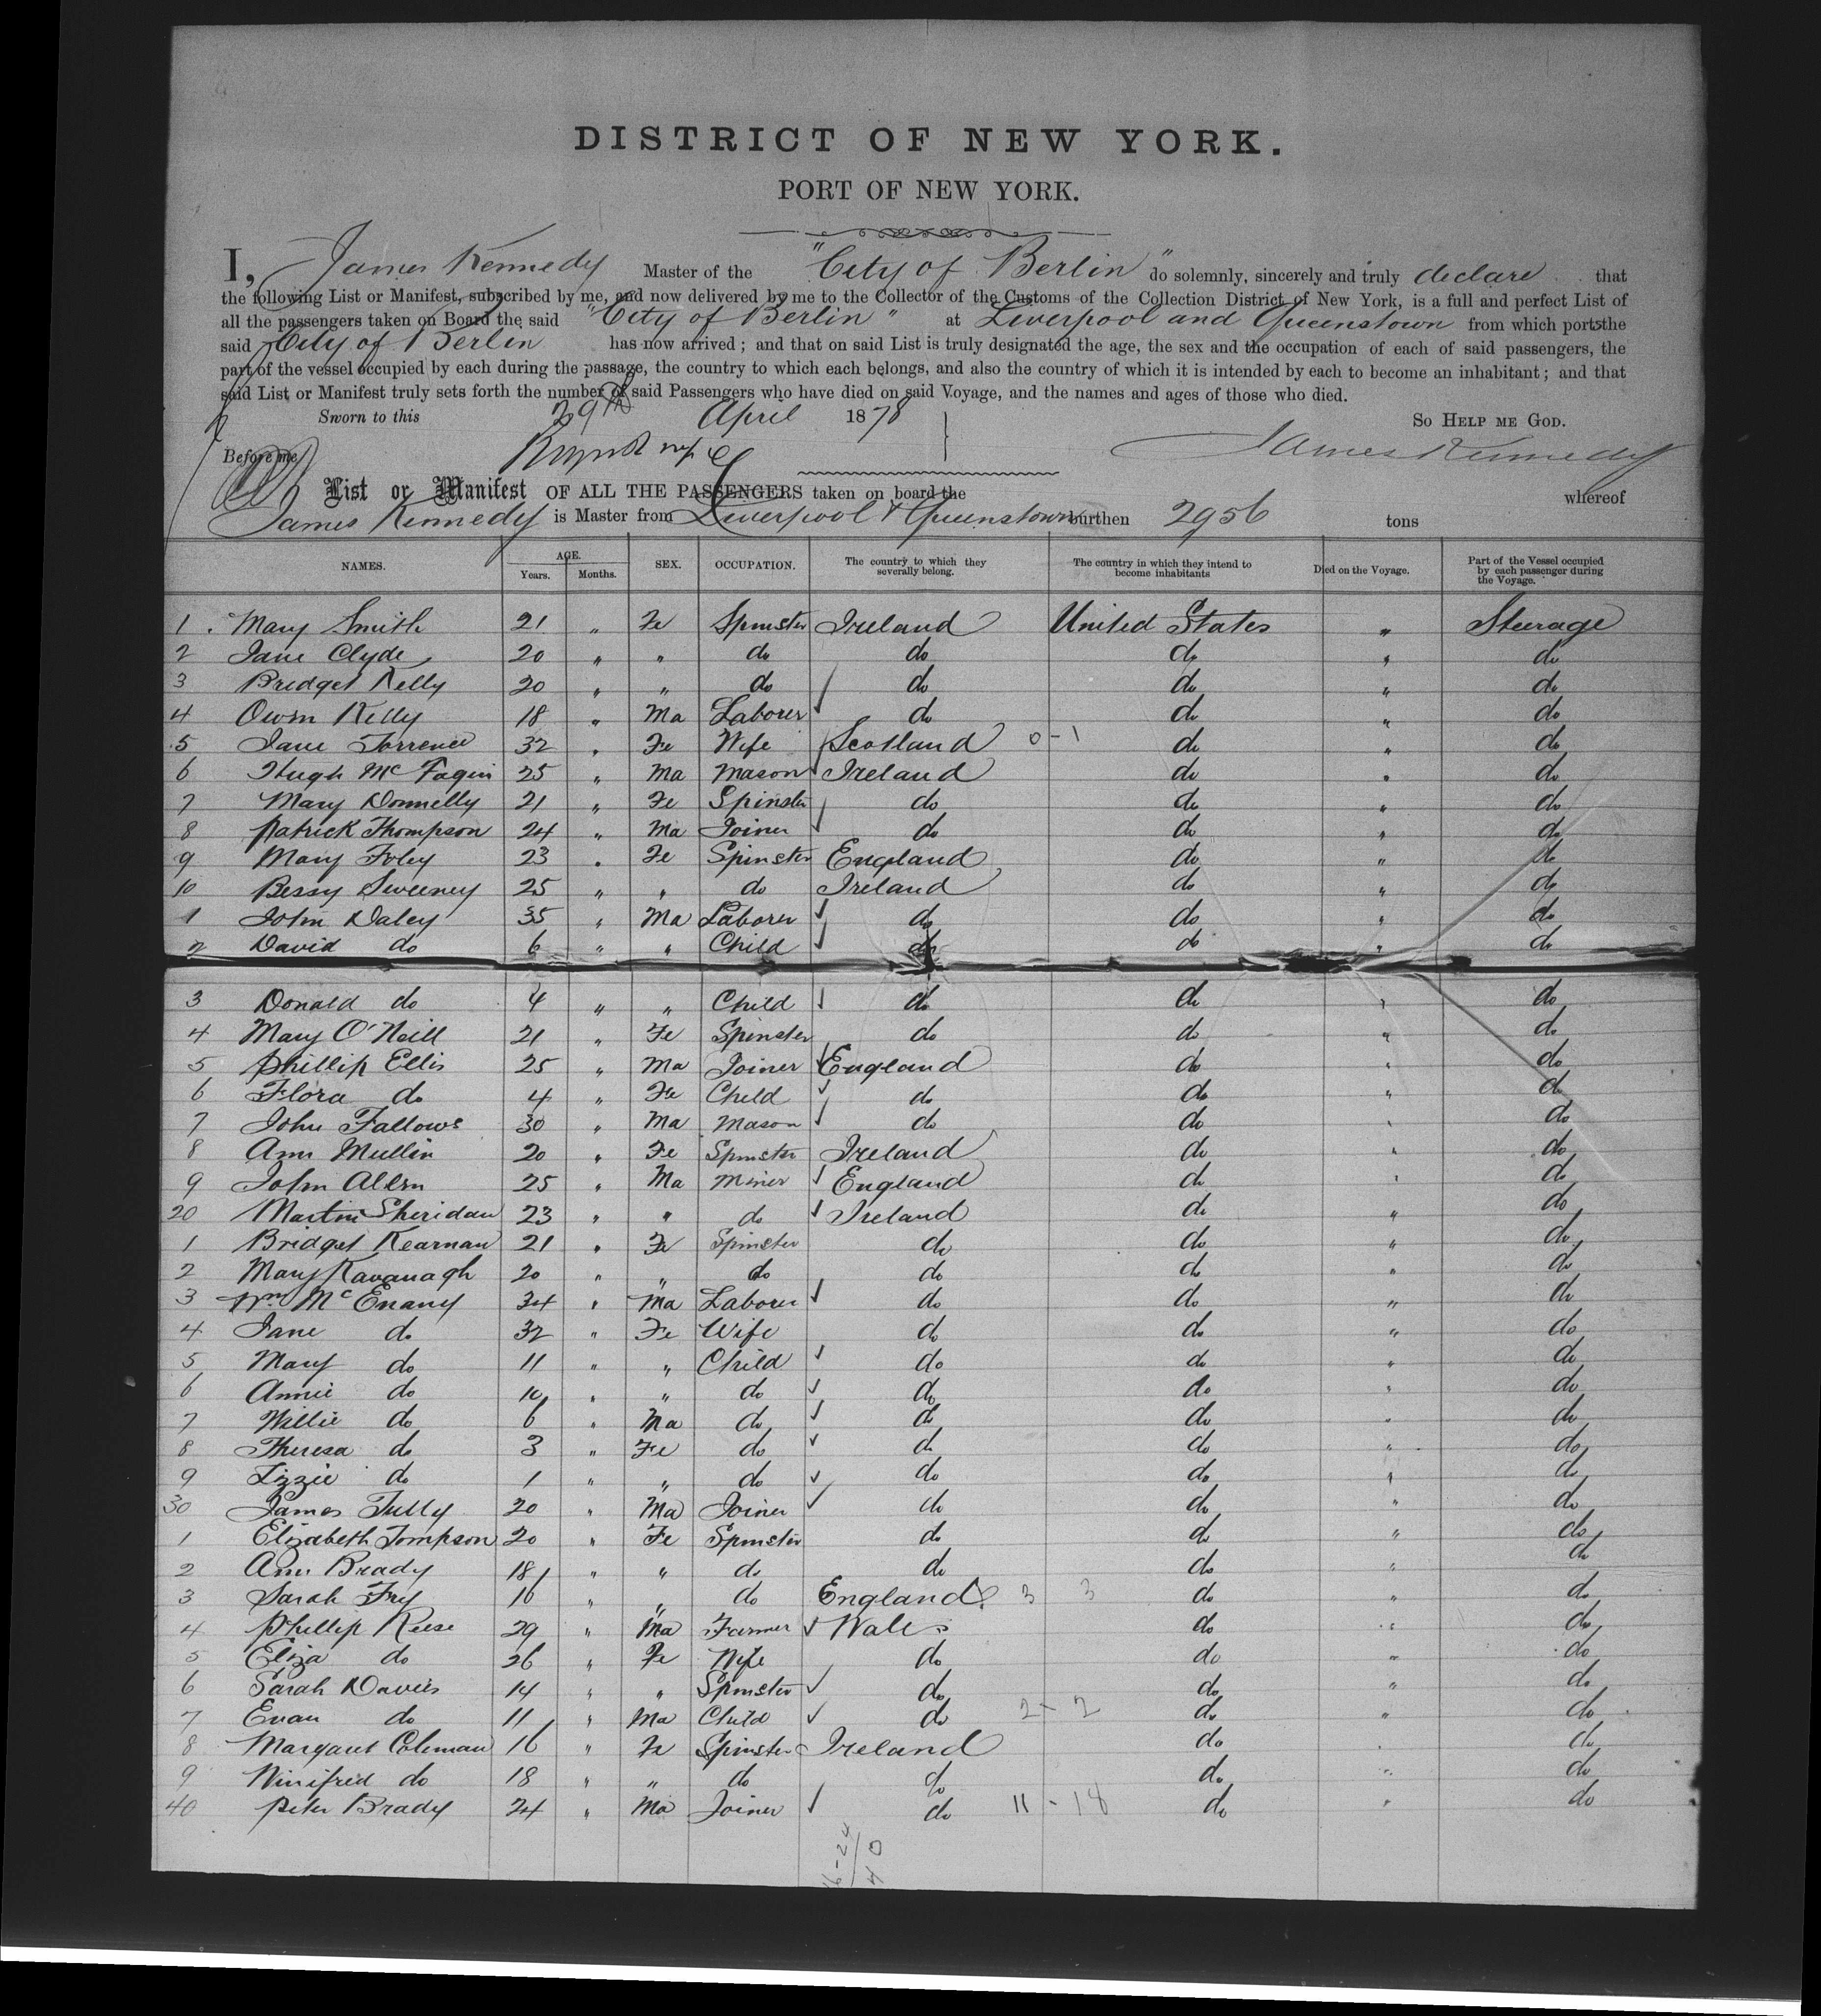 DISTRICT OF NEW YORK.
PORT OF NEW YORK.
I, James Kennedy Master of the "City of Berlin" do solemnly, sincerely and truly declare that
the following List or Manifest, subscribed by me, and now delivered by me to the Collector of the Customs of the Collection District of New York, is a full and perfect List of
all the passengers taken on Board the said "City of Berlin" at Liverpool and Queenstown from which ports the
said City of Berlin has now arrived; and that on said List is truly designated the age, the sex and the occupation of each of said passengers, the
part of the vessel occupied by each during the passage, the country to which each belongs, and also the country of which it is intended by each to become an inhabitant; and that
said List or Manifest truly sets forth the number of said Passengers who have died on said Voyage, and the names and ages of those who died.
Sworn to this 29th April 1878 SO HELP ME GOD.
Before me James Kennedy
List or Manifest OF ALL THE PASSENGERS taken on board the whereof
James Kennedy is Master from Liverpool & Queenstown burthen 2956 tons
NAMES. AGE. Years. Months. SEX. OCCUPATION. The country to which they severally belong. The country in which they intend to become inhabitants Died on the Voyage. Part of the Vessel occupied by each passenger during the Voyage.
1 Mary Smith 21 " Fe Spinster Ireland United States " Steerage
2 Jane Clyde 20 " " do do do " do
3 Bridget Kelly 20 " " do do do " do
4 Owen Kelly 18 " Ma Laborer do do " do
5 Jane Torrence 32 " Fe Wife Scotland 0-1 do " do
6 Hugh McFaguin 25 " Ma Mason Ireland do " do
7 Mary Donnelly 21 " Fe Spinster do do " do
8 Patrick Thompson 24 " Ma Joiner do do " do
9 Mary Foley 23 " Fe Spinster England do " do
10 Bessy Sweeney 25 " " do Ireland do " do
1 John Daley 35 " Ma Laborer do do " do
2 David do 6 " " Child do do " do
3 Donald do 4 " " Child do do " do
4 Mary O'Neill 21 " Fe Spinster do do " do
5 Phillip Ellis 25 " Ma Joiner England do " do
6 Flora do 4 " Fe Child do do " do
7 John Fallows 30 " Ma Mason do do " do
8 Ann Mullin 20 " Fe Spinster Ireland do " do
9 John Allen 25 " Ma Miner England do " do
20 Martin Sheridan 23 " " do Ireland do " do
1 Bridget Kearnan 21 " Fe Spinster do do " do
2 Mary Kavanagh 20 " " do do do " do
3 Wm McEnany 34 " Ma Laborer do do " do
4 Jane do 32 " Fe Wife do do " do
5 Mary do 11 " " Child do do " do
6 Annie do 10 " " do do do " do
7 Willie do 6 " Ma do do do " do
8 Theresa do 3 " Fe do do do " do
9 Lizzie do 1 " " do do do " do
30 James Tully 20 " Ma Joiner do do " do
1 Elizabeth Tompson 20 " Fe Spinster do do " do
2 Ann Brady 18 " " do do do " do
3 Sarah Fry 16 " " do England 3 3 do " do
4 Phillip Reese 29 " Ma Farmer Wales do " do
5 Eliza do 26 " Fe Wife do do " do
6 Sarah Davies 14 " " Spinster do do " do
7 Evan do 11 " Ma Child do 2-2 do " do
8 Margaret Coleman 16 " Fe Spinster Ireland do " do
9 Winifred do 18 " " do do do " do
40 Peter Brady 24 " Ma Joiner do 11-18 do " do
16-24
40